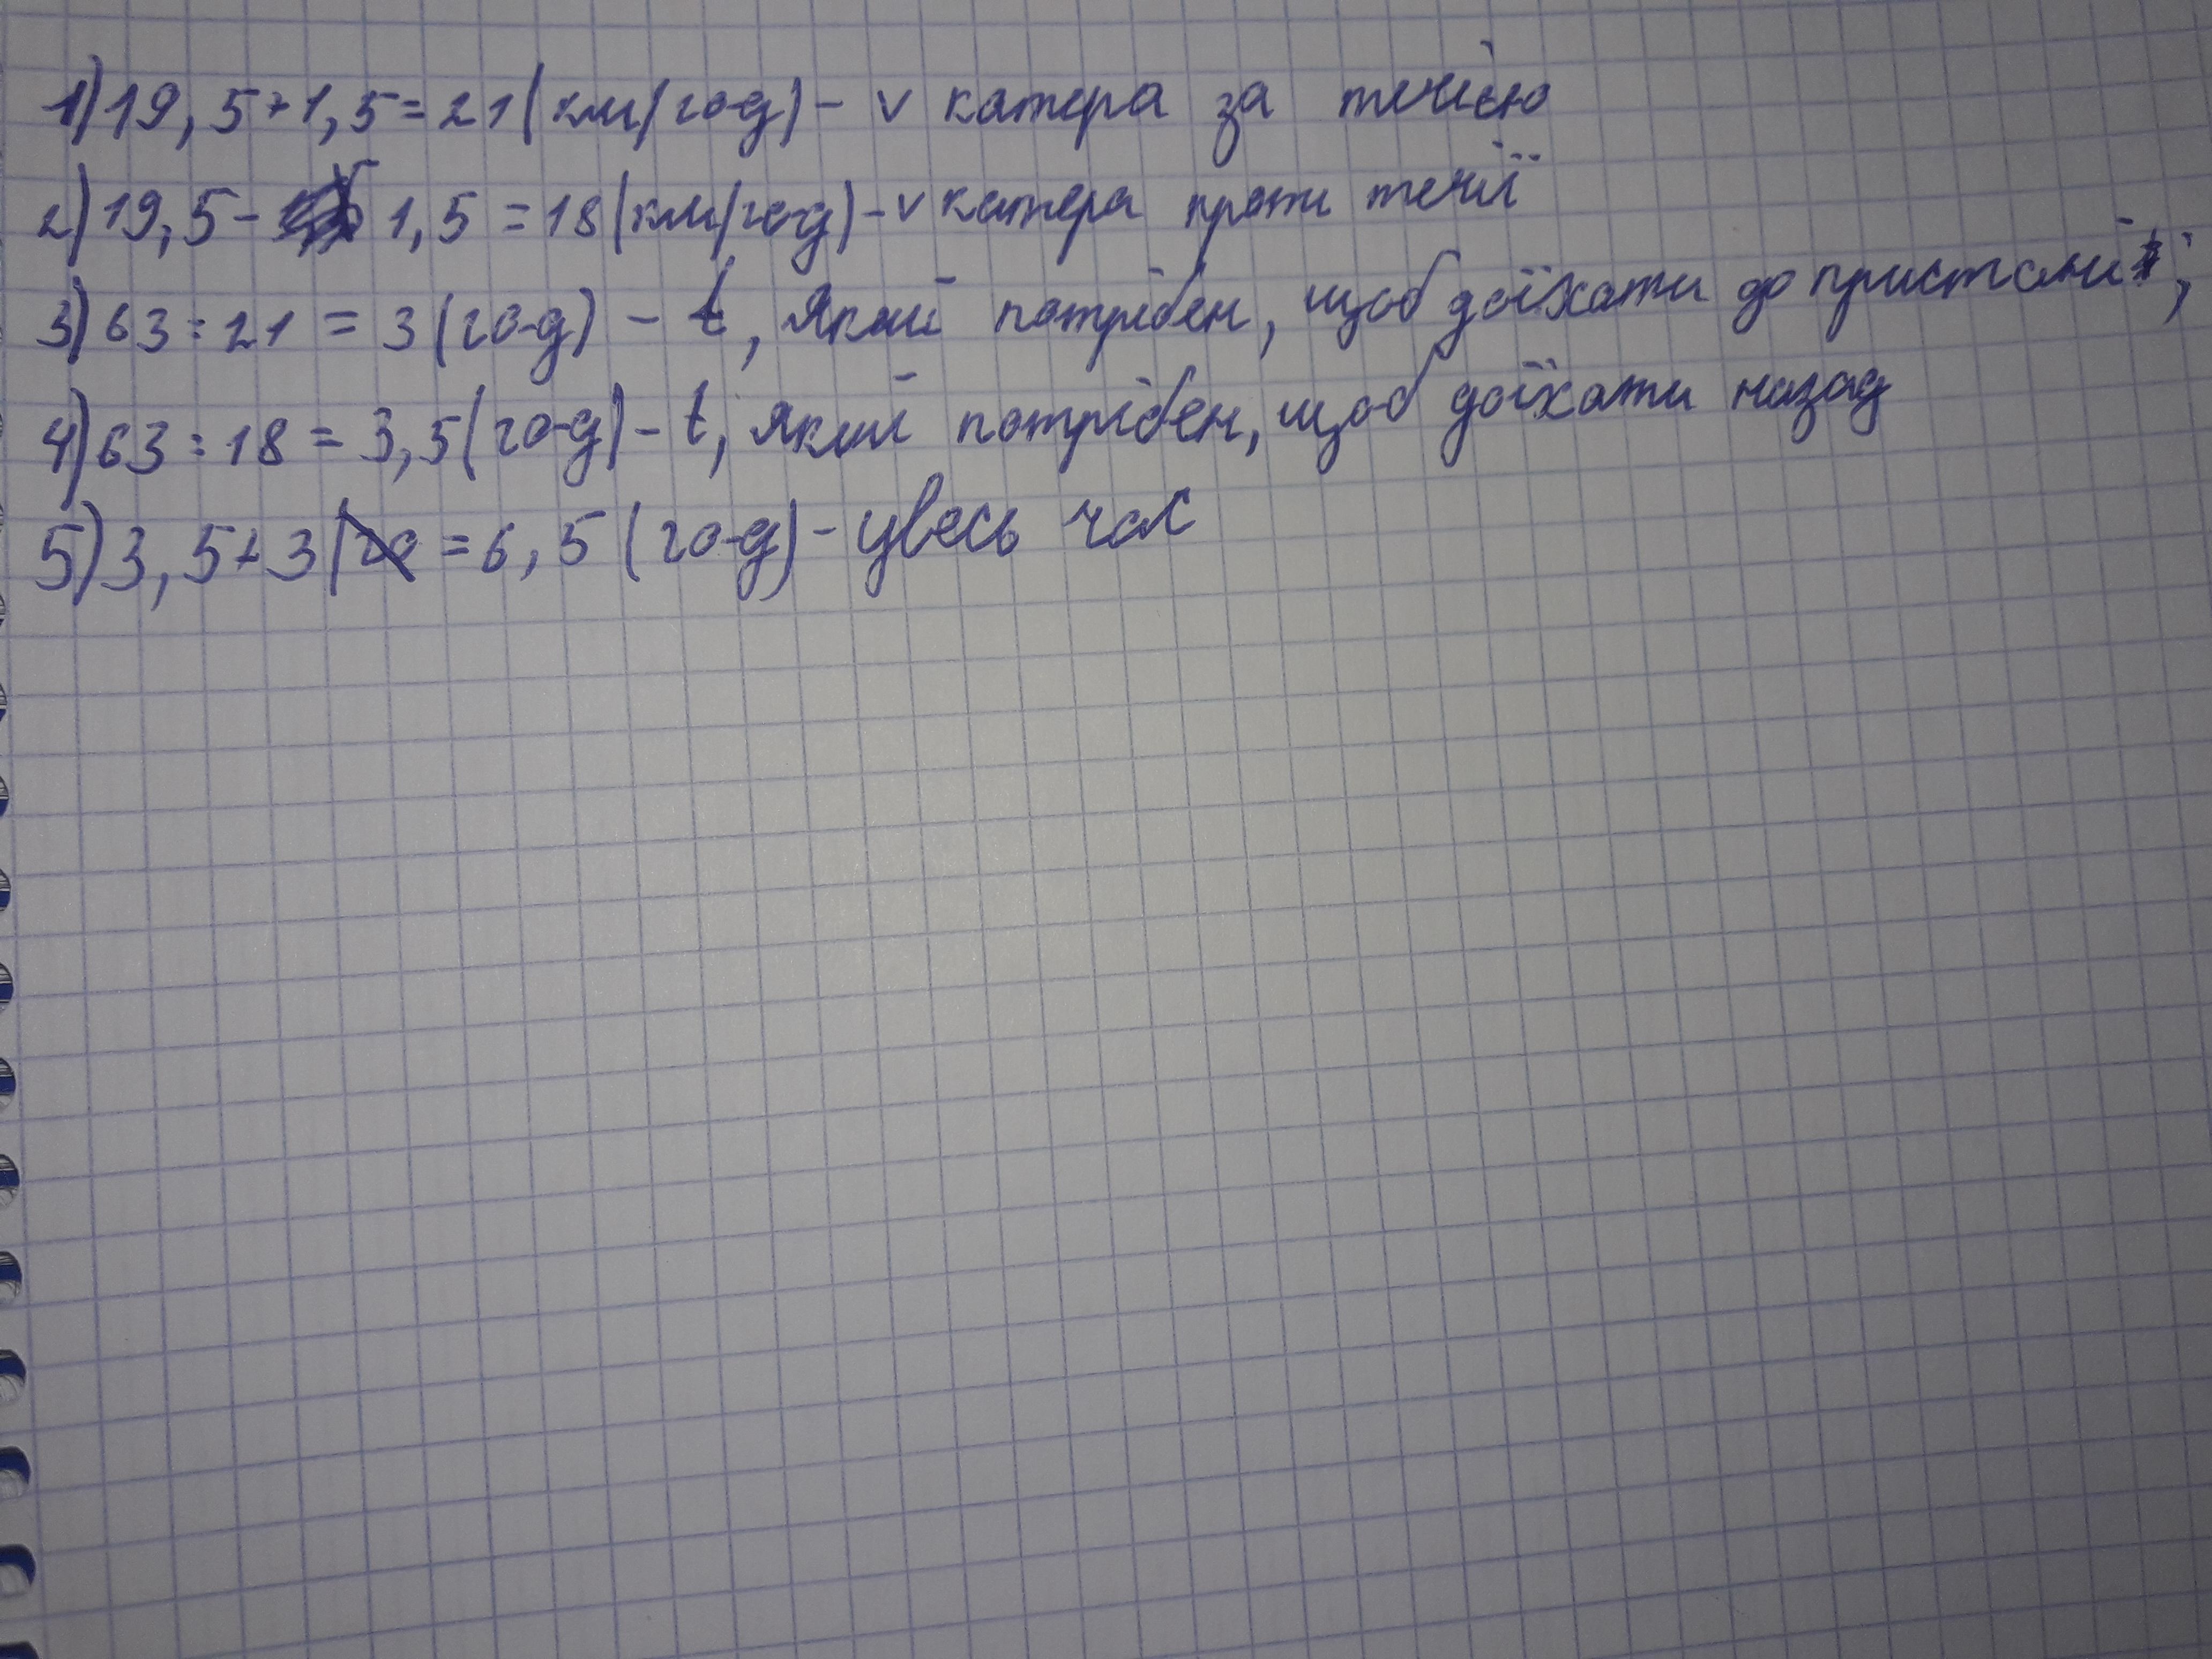 1) 19,5+1,5=21(км/го-д) - v катера за течією
2) 19,5- 1,5 = 18(км/го-д) - v катера проти течії
3) 63:21 = 3(го-д) - t, який потрібен, щоб доїхати до пристані;
4) 63:18 = 3,5(го-д) - t, який потрібен, щоб доїхати назад
5) 3,5+3 = 6,5 (го-д) - увесь час